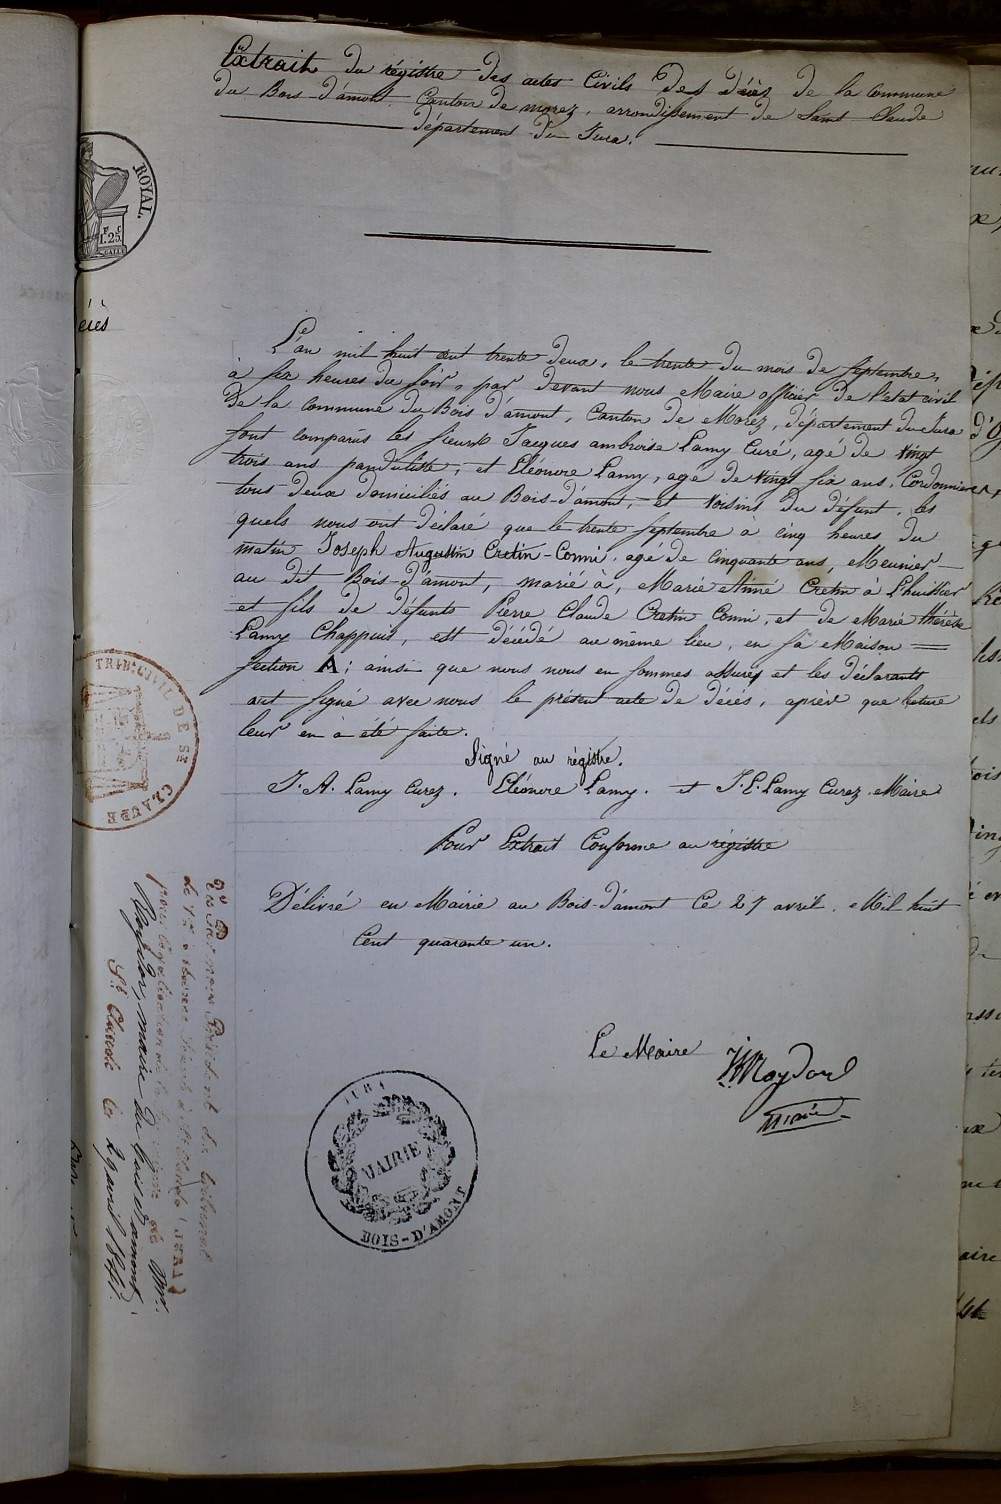 Extrait du régistre des actes Civils Des Décès de la Commune
du Bois-d'amont, Canton de morez, arrondissement de Saint Claude
département du Jura.
ROYAL.
F. C.
1.25.
écès
L'an mil huit cent trente deux, le trente du mois de Septembre,
à six heures du soir, par devant nous Maire officier de l'etat civil
De la Commune du Bois-d'amont, Canton de Morez, département du Jura
sont comparus les sieurs Jacques ambroise Lamy Curé, agé de vingt
trois ans panduliste, et Eléonore Lamy, agé de vingt six ans, Cordonnier
tous deux domiciliés au Bois-d'amont, et voisins du défunt, les
quels nous ont déclaré que le trente septembre à cinq heures du
matin Joseph Augustin Cretin-Conni, agé de cinquante ans, Meunier
au dit Bois-d'amont, marié à, Marie Aimé Cretin à L'huillier
et fils de défunts Pierre Claude Cretin Conni, et de Marie thérèse
Lamy Chappuis, est décédé au même lieu, en sa Maison
section A; ainsi que nous nous en sommes assurés et les déclarants
ont signé avec nous le présent acte de décès, après que lecture
leur en à été faite.
Signé au régistre.
J. A. Lamy Curez. Eléonore Lamy. et J. E. Lamy Curez. Maire
Pour Extrait Conforme au régistre
Délivré en Mairie au Bois-d'amont Ce 27 avril. Mil huit
Cent quarante un.
Le Maire
maire
JURA
MAIRIE
BOIS-D'AMONT
TRIB. CIVIL DE ST CLAUDE
Vu Par nous Président du tribunal
de 1re instance séant à St Claude (JURA)
pour légalisation de la signature de Mr.
maire du bois d'amont
St. Claude le 29 avril 1841.